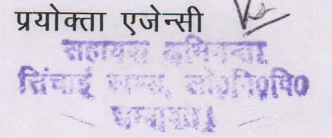 प्रयोक्ता एजेन्सी
सहायक अभियन्ता
सिंचाई खण्ड, लो०नि०वि०